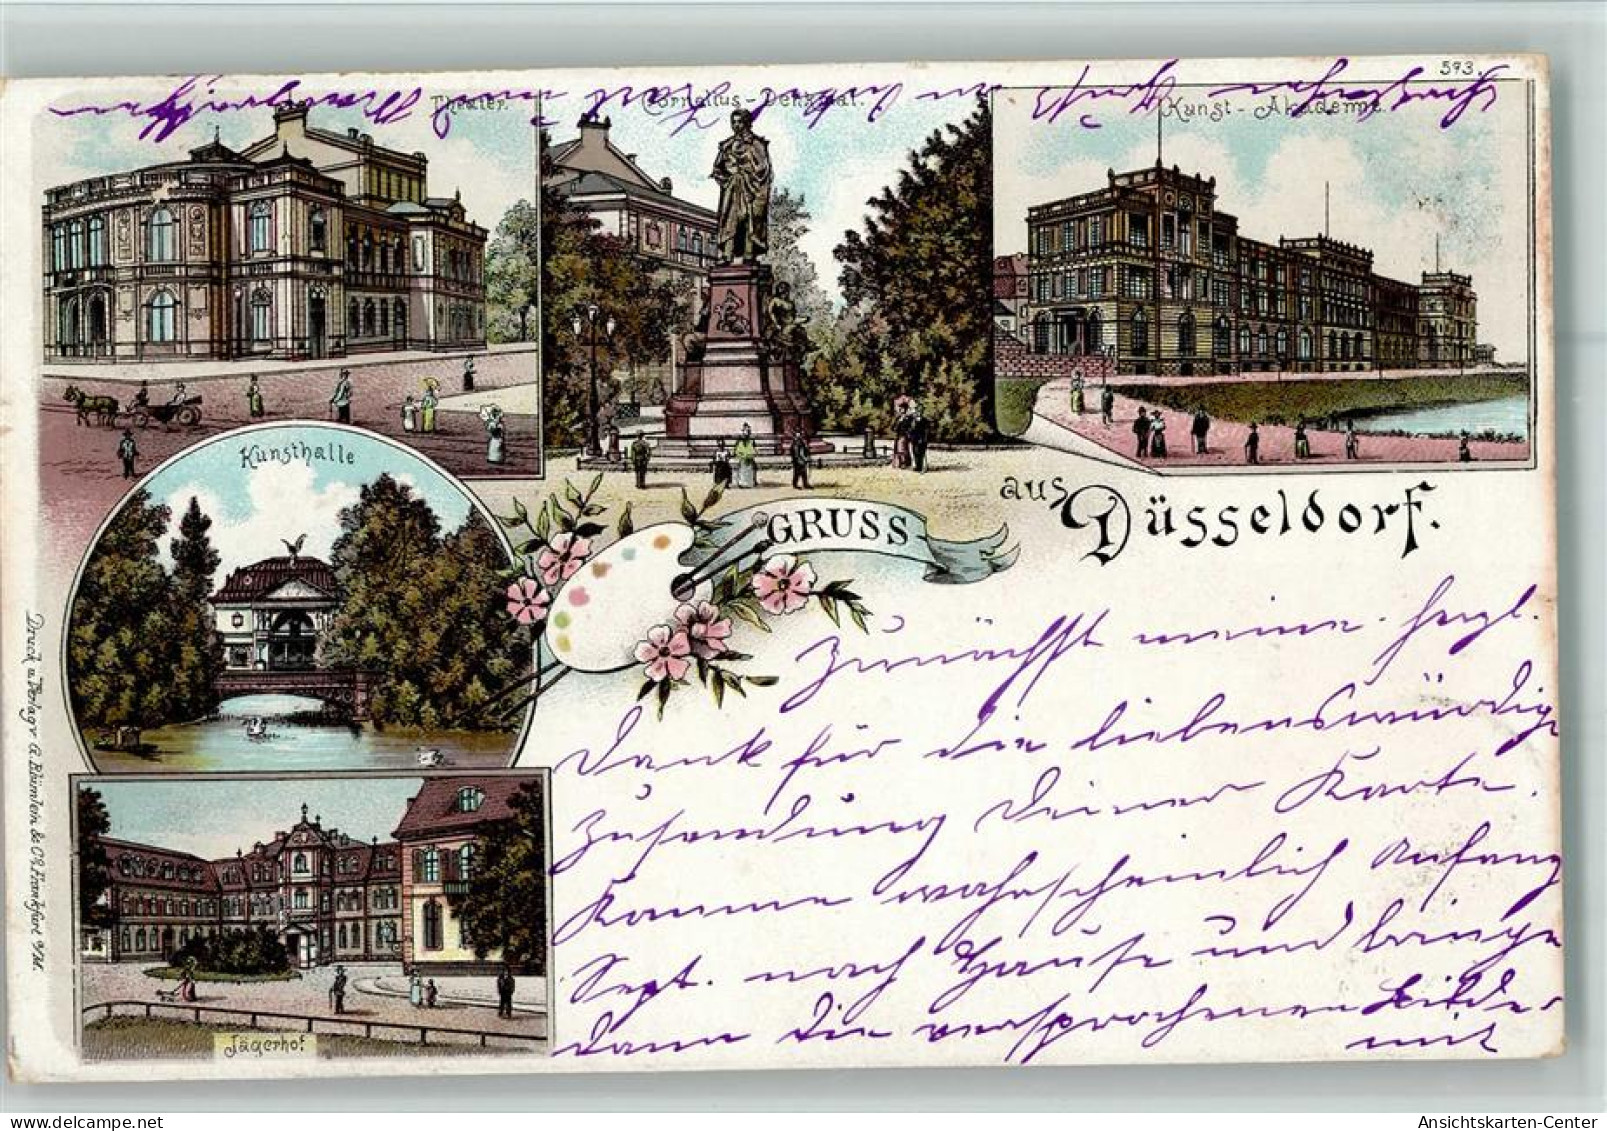 593.
Theater.
Cornelius-Denkmal.
Kunst-Akademie
Kunsthalle
GRUSS
aus Düsseldorf.
Jägerhof
Druck u. Verlag v. G. Blümlein & Co. Frankfurt a/M.
Zunächst meinen herzl.
Dank für die liebenswürdige
Zusendung Deiner Karte.
Komme wahrscheinlich Anfang
Sept. nach Hause und bringe
dann die versprochenen Bilder
mit
Ansichtskarten-Center